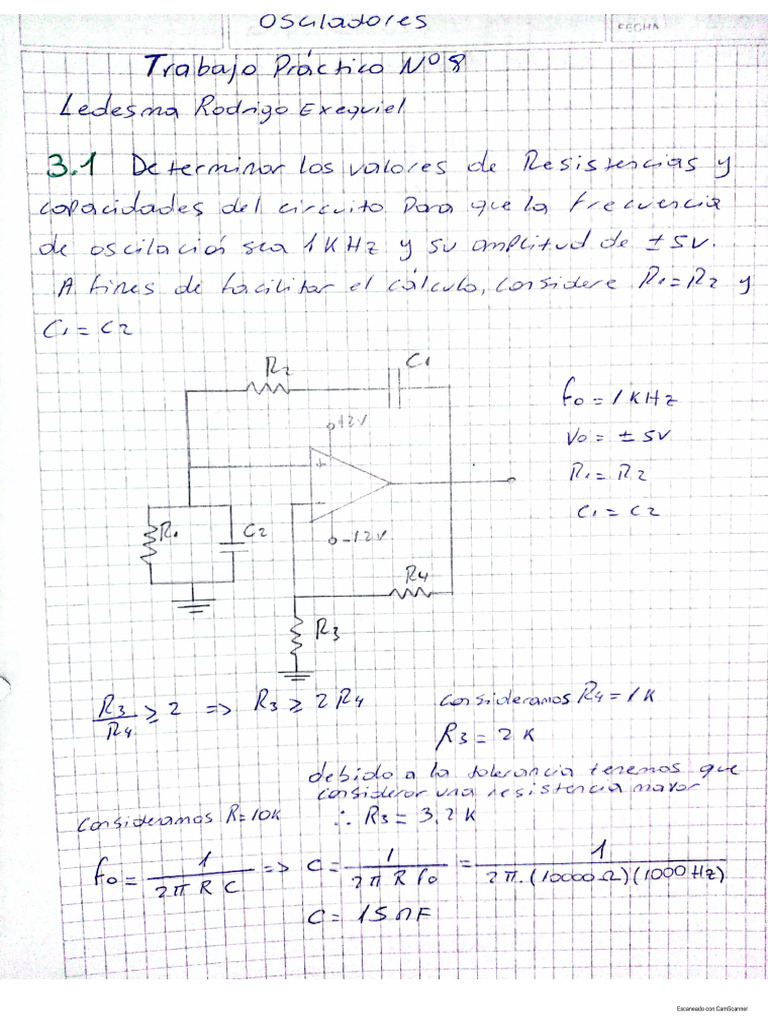 Osciladores
FECHA
Trabajo Práctico Nº 8
Ledesma Rodrigo Exequiel
3.1 Determinar los valores de Resistencias y
capacidades del circuito para que la frecuencia
de oscilació sea 1KHz y su amplitud de ± 5v.
A fines de facilitar el cálculo, considere R1=R2 y
C1 = C2
R2
C1
+12V
+
-
-12V
R1
C2
R4
R3
fo = 1KHz
Vo = ± 5V
R1 = R2
C1 = C2
R3/R4 ≥ 2 => R3 ≥ 2 R4
consideramos R4 = 1K
R3 = 2K
debido a la tolerancia tenemos que
considerar una resistencia mayor
consideramos R=10K
∴ R3 = 3,2K
fo = 1/(2π R C) => C = 1/(2π R fo) = 1/(2π.(10000Ω)(1000Hz))
C = 15nF
Escaneado con CamScanner